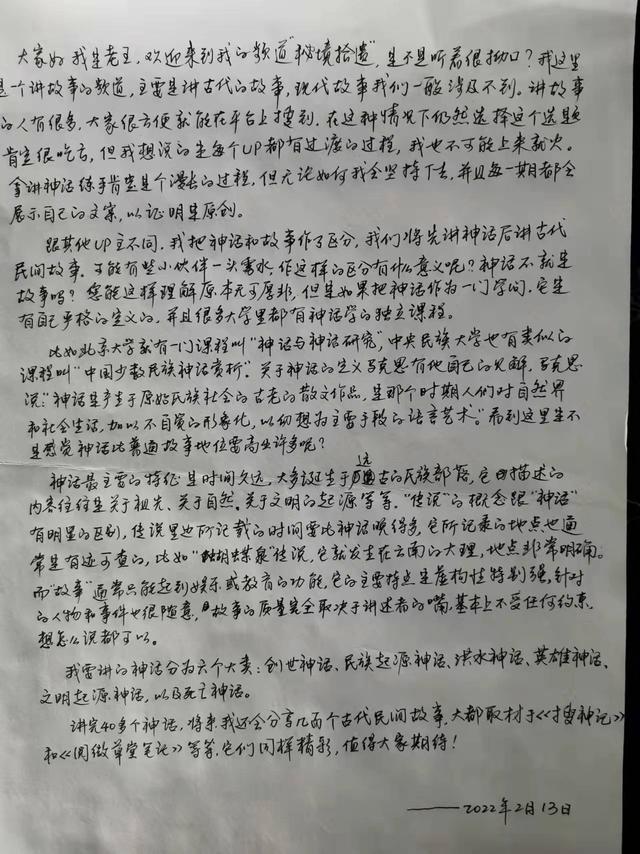 大家好 我是老王，欢迎来到我的频道"秘境拾遗"，是不是听着很拗口？我这里
是一个讲故事的频道，主要是讲古代的故事，现代故事我们一般涉及不到。讲故事
的人有很多，大家很方便就能在平台上搜到，在这种情况下仍然选择这个选题
肯定很吃亏，但我想说的是每个UP都有过渡的过程，我也不可能上来就火。
拿讲神话练手肯定是个漫长的过程，但无论如何我会坚持下去，并且每一期都会
展示自己的文案，以证明是原创。
跟其他UP主不同，我把神话和故事作了区分，我们将先讲神话后讲古代
民间故事，可能有些小伙伴一头雾水，作这样的区分有什么意义呢？神话不就是
故事吗？您能这样理解原本无可厚非，但是如果把神话作为一门学问，它是
有自己严格的定义的，并且很多大学里都有神话学的独立课程。
比如北京大学就有一门课程叫"神话与神话研究"，中央民族大学也有类似的
课程叫"中国少数民族神话赏析"。关于神话的定义马克思有他自己的见解，马克思
说："神话是产生于原始氏族社会的古老的散文作品，是那个时期人们对自然界
和社会生活，加以不自觉的形象化，以幻想为主要手段的语言艺术。"看到这里是不
是感觉神话比普通故事地位要高出许多呢？
神话最主要的特征是时间久远，大多诞生于远古的民族部落，它描述的
内容往往是关于祖先、关于自然、关于文明的起源等等。"传说"的概念跟"神话"
有明显的区别，传说里边所记载的时间要比神话晚得多，它所记录的地点也通
常是有迹可查的，比如"蝴蝶泉"传说，它就发生在云南的大理，地点非常明确。
而"故事"通常只能起到娱乐或教育的功能，它的主要特点是虚构性特别强，针对
的人物和事件也很随意，故事的质量完全取决于讲述者的嘴，基本上不受任何约束，
想怎么说都可以。
我要讲的神话分为六个大类：创世神话、民族起源神话、洪水神话、英雄神话、
文明起源神话，以及死亡神话。
讲完40多个神话，将来我还会分享几百个古代民间故事，大都取材于《搜神记》
和《阅微草堂笔记》等等，它们同样精彩，值得大家期待！
——2022年2月13日